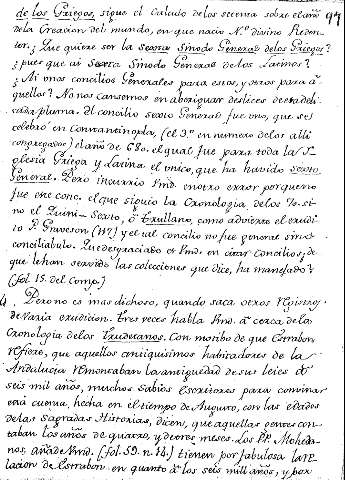 de los Griegos, sigue el Calculo de los setenta sobre el año
dela Creacion del mundo, en que nacio N.º divino Reden-
tor. ¿Que quiere ser la Sexta Sinodo General de los Griegos?
¿pues que ai Sexta Sinodo General de los Latinos?
¿Ai unos concilios Generales para estos, y otros para a-
quellos? No nos cansemos en aberiguar deslices de tan deli-
cada pluma. El concilio sexto General fue uno, que se
celebrò en Constantinopla, (el 3.º en numero delos alli
congregados) el año de 680. el qual fue para toda la S.ta
Iglesia Griega y Latina el unico, que ha havido sexto
General. Pero incurriò Vmd. en otro error porque no
fue este conc. el que siguio la Cronologia, delos 70. si-
no el Quini-Sexto, ò Trullano, como advierte el erudi-
to P. Graveson (117) y el tal concilio no fue general sino
conciliabulo. Que desgraciado es Vmd. en citar Concilios, de
que le han servido las colecciones que dice, ha manejado?
(fol. 15. del Comp.)
Pero no es mas dichoso, quando saca otros Registros
de varia erudicion. Tres veces habla Vmd. à cerca dela
Cronologia delos Turdetanos. Con motibo de que Estrabon
refiere, que aquellos antiquisimos habitadores de la
Andalucia remontaban la antiguedad de sus leies à
seis mil años, muchos Sabios Escritores para convinar
esta cuenta, hecha en el tiempo de Augusto, con las edades
delas Sagradas Historias, dicen, que aquellas gentes con-
taban los años de quatro, y de tres meses. Los PP. Moheda-
nos, añade Vmd. (fol. 59. n. 14.) tienen por fabulosa la re-
lacion de Estrabon. en quanto à los seis mil años, y por
97